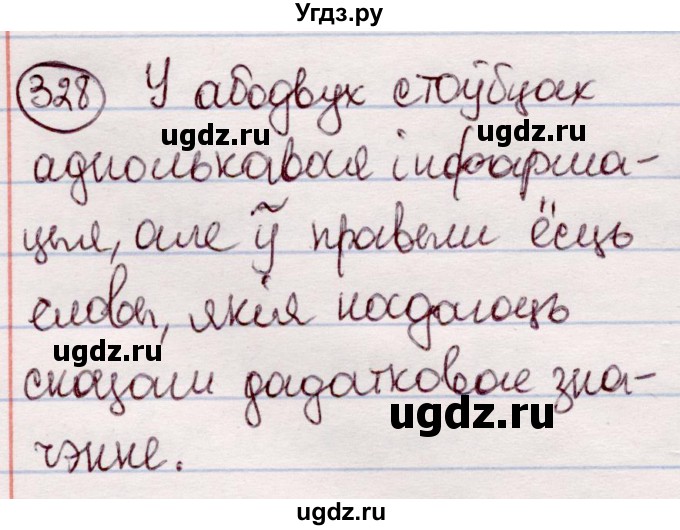 Угдз.ру
328 У абодвух стоўбцах
ugdz.ru ugdz.ru
аднолькавая інфарма-
цыя, але ў правым ёсць
словы, якія надаюць
ugdz.ru
сказам дадатковае зна-
ugdz.ru
чэнне.
ugdz.ru